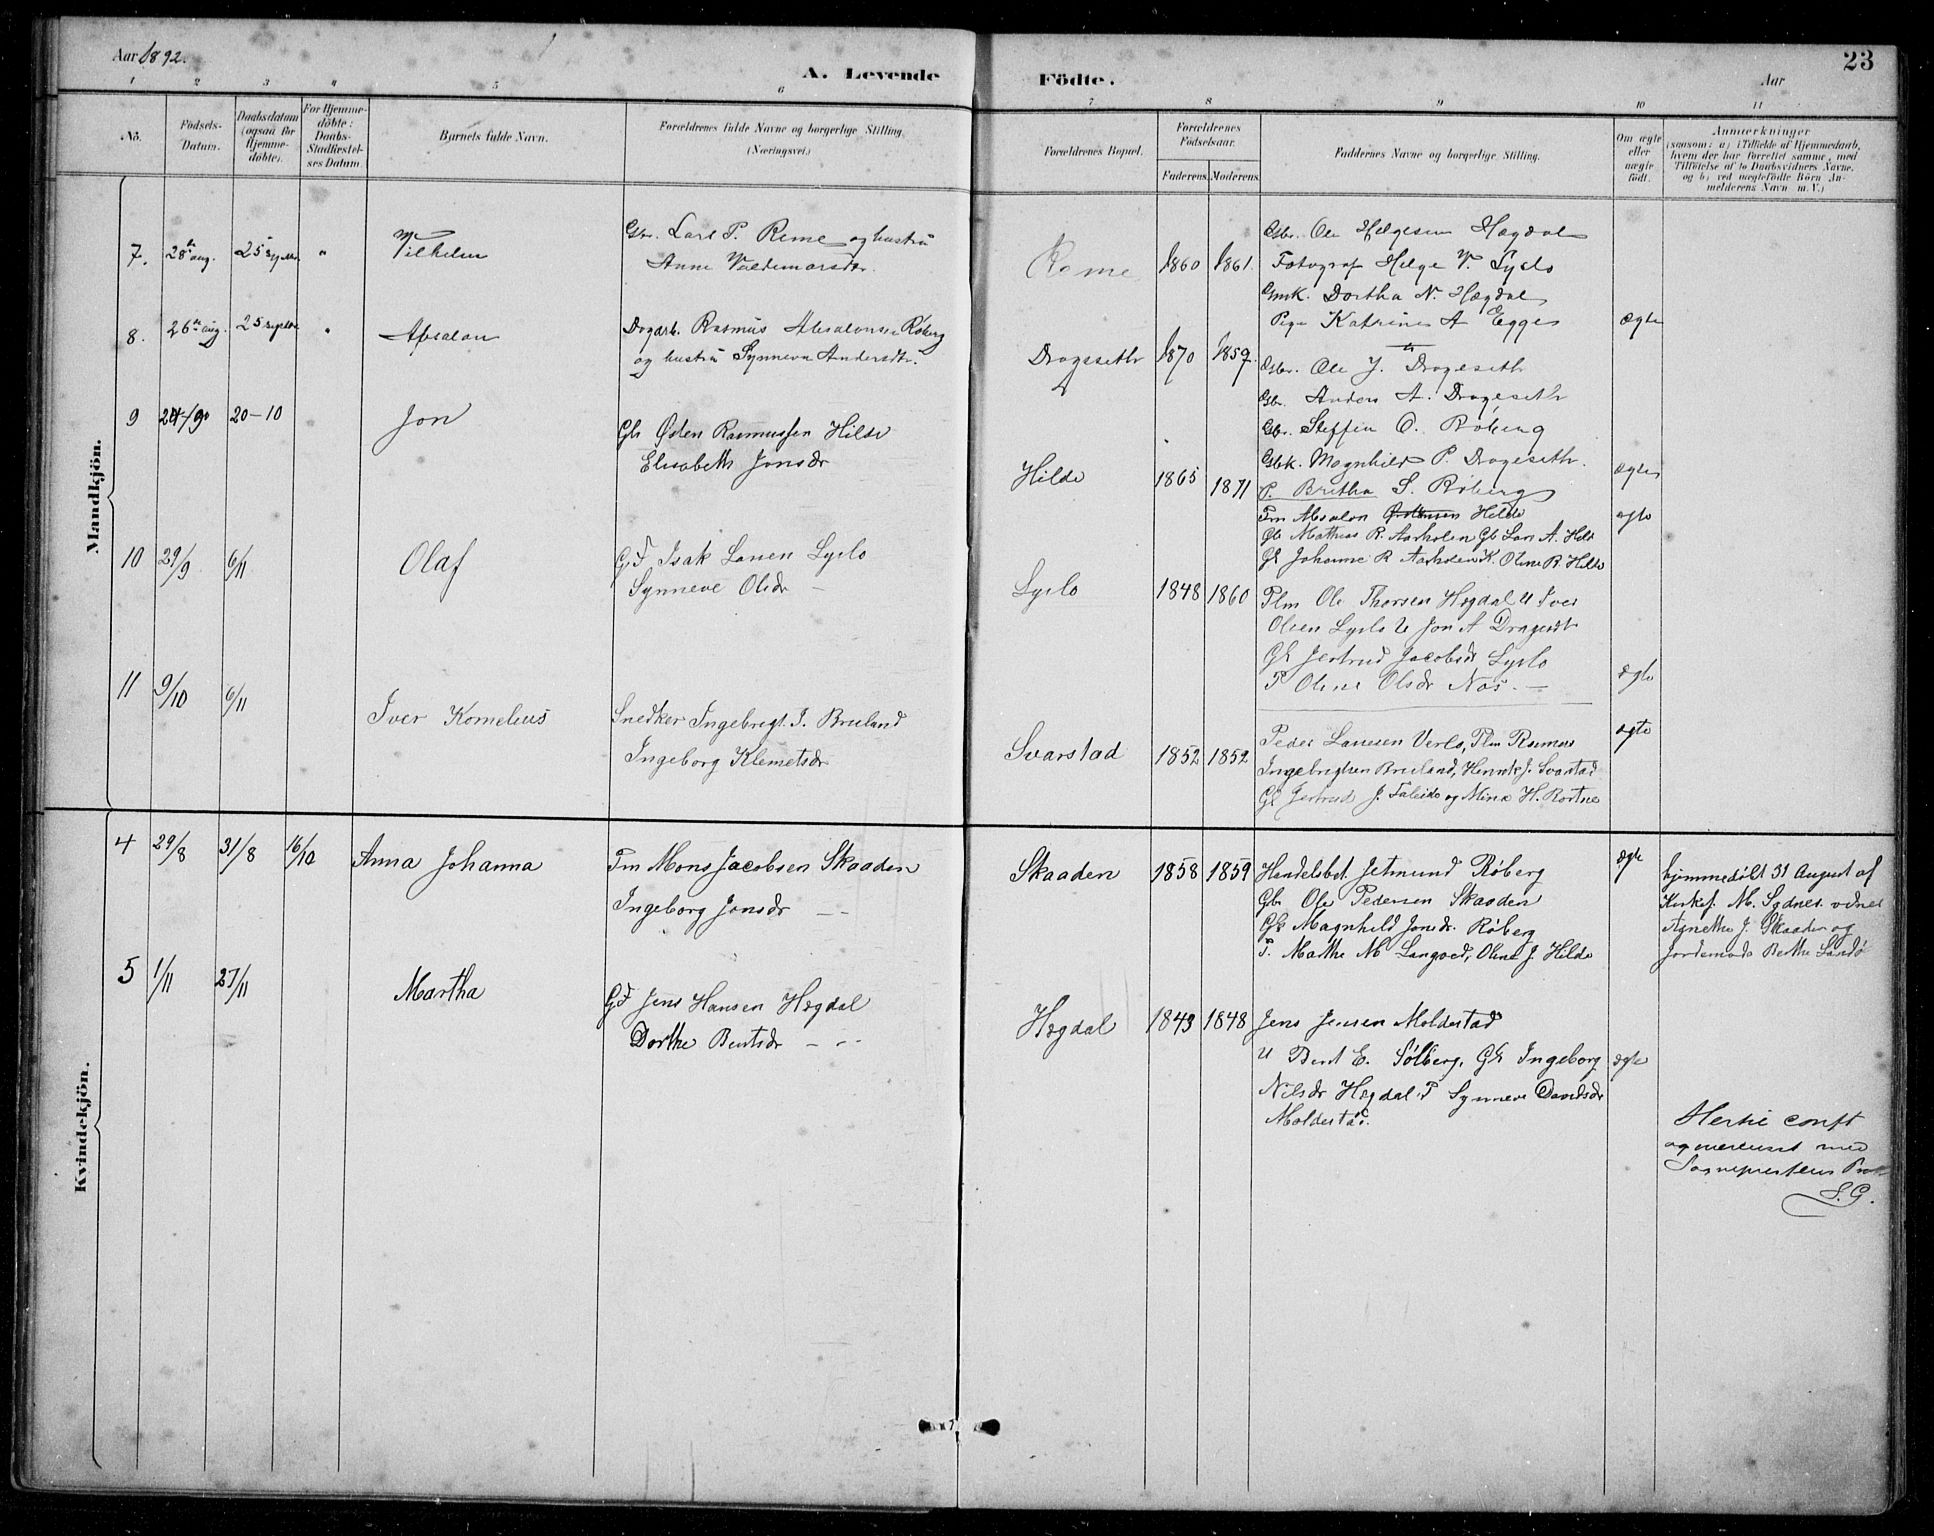 Aar 1892.
A. Levende Födte.
Aar
23
1 2 3 4 5 6 7 8 9 10 11
No.
Födsels-Datum.
Daabsdatum (ogsaa for Hjemme-döbte).
For Hjemme-döbte: Daabs-Stadfæstel-ses Datum.
Barnets fulde Navn.
Forældrenes fulde Navne og borgerlige Stilling. (Næringsvei.)
Forældrenes Bopæl.
Forældrenes Födselsaar.
Faderens. Moderens.
Faddernes Navne og borgerlige Stilling.
Om ægte eller uægte födt.
Anmærkninger
(saasom: a) i Tilfælde af Hjemmedaab,
hvem der har forrettet samme, med
Tilföielse af to Daabsvidners Navne.
og b) ved uægtefödte Börn An-
melderens Navn m. V.)
Mandkjön.
7. 28de aug. 25 septbr. " Vilhelm
Gbr. Lars P. Reme og hustru
Anne Valdemarsdr.
Reme 1860 1861.
Gbr. Ole Helgesen Hægdal
Fotograf Helge V. Lyslo
Gmk. Dortha N. Hægdal
Pige Katrine A Egge
ægte
8. 26de aug. 25 septbr " Absalon
Dagarb. Rasmus Absalonsen Röberg
og hustru Synneva Andersdtr.
Drageseth 1870 1859.
Gbr. Ole J. Drageseth
Gbr. Anders A. Drageseth
Gbr. Steffen O. Röberg
Gbk. Magnhild P. Drageseth.
P. Britha S. Röberg
ægte
9 20-10 Jon
Gbr Østen Rasmussen Hilde
Elisabeth Jonsdr
Hilde 1865 1871
Fm Absalon Hilde
Gb Mathias R. Aarholen Gb Lars A. Hilde
Gk Johanne R Aarholen K. Oline R. Hilde
ægte
10 29/9 6/11 Olaf
GF Isak Larsen Lyslo
Synneve Olsdr —
Lyslo 1848 1860
Plm Ole Thorsen Hægdal U Iver
Olsen Lyslo U Jon A Dragesdt
Gk Jertrud Jacobsdr Lyslo
P Oline Olsdr Nos. —
ægte
11 9/10 6/11 Iver Kornelius
Snedker Ingebrigt I. Breiland
Ingeborg Klemetsdr
Svarstad 1852 1852
Peder Larsen Verlo, Plm Rasmus
Ingebrigtsen Breiland, Henrik J. Svarstad
Gk Jertrud J. Taleide og Mina H. Rortne
ægte
Kvindekjön.
4 29/8 31/8 16/10 Anna Johanna
Fm Mons Jacobsen Skaaden
Ingeborg Jonsdr — —
Skaaden 1858 1859
Handelsbet. Jetmund Røberg
Gbr Ole Pedersen Skaaden
Gk Magnhild Jonsdr. Røberg
P. Marthe M Langved, Oline J. Hilde
ægte
hjemmedöbt 31 August af
Kirkes. M. Sydnes. vidner
Agnethe J. Skaaden og
Jordemode Berthe Sandø
5 1/11 27/11 Martha
GF Jens Hansen Hægdal
Dorthe Bentsdr — --
Hægdal 1843 1848
Jens Jensen Moldestad
U Bent E. Sølberg, Gk Ingeborg
Nilsdr Hægdal P Synneve Davidsdr
Moldestad.
ægte
Hertil conft
og overensst med
Sognepræstens Prot
S.G.